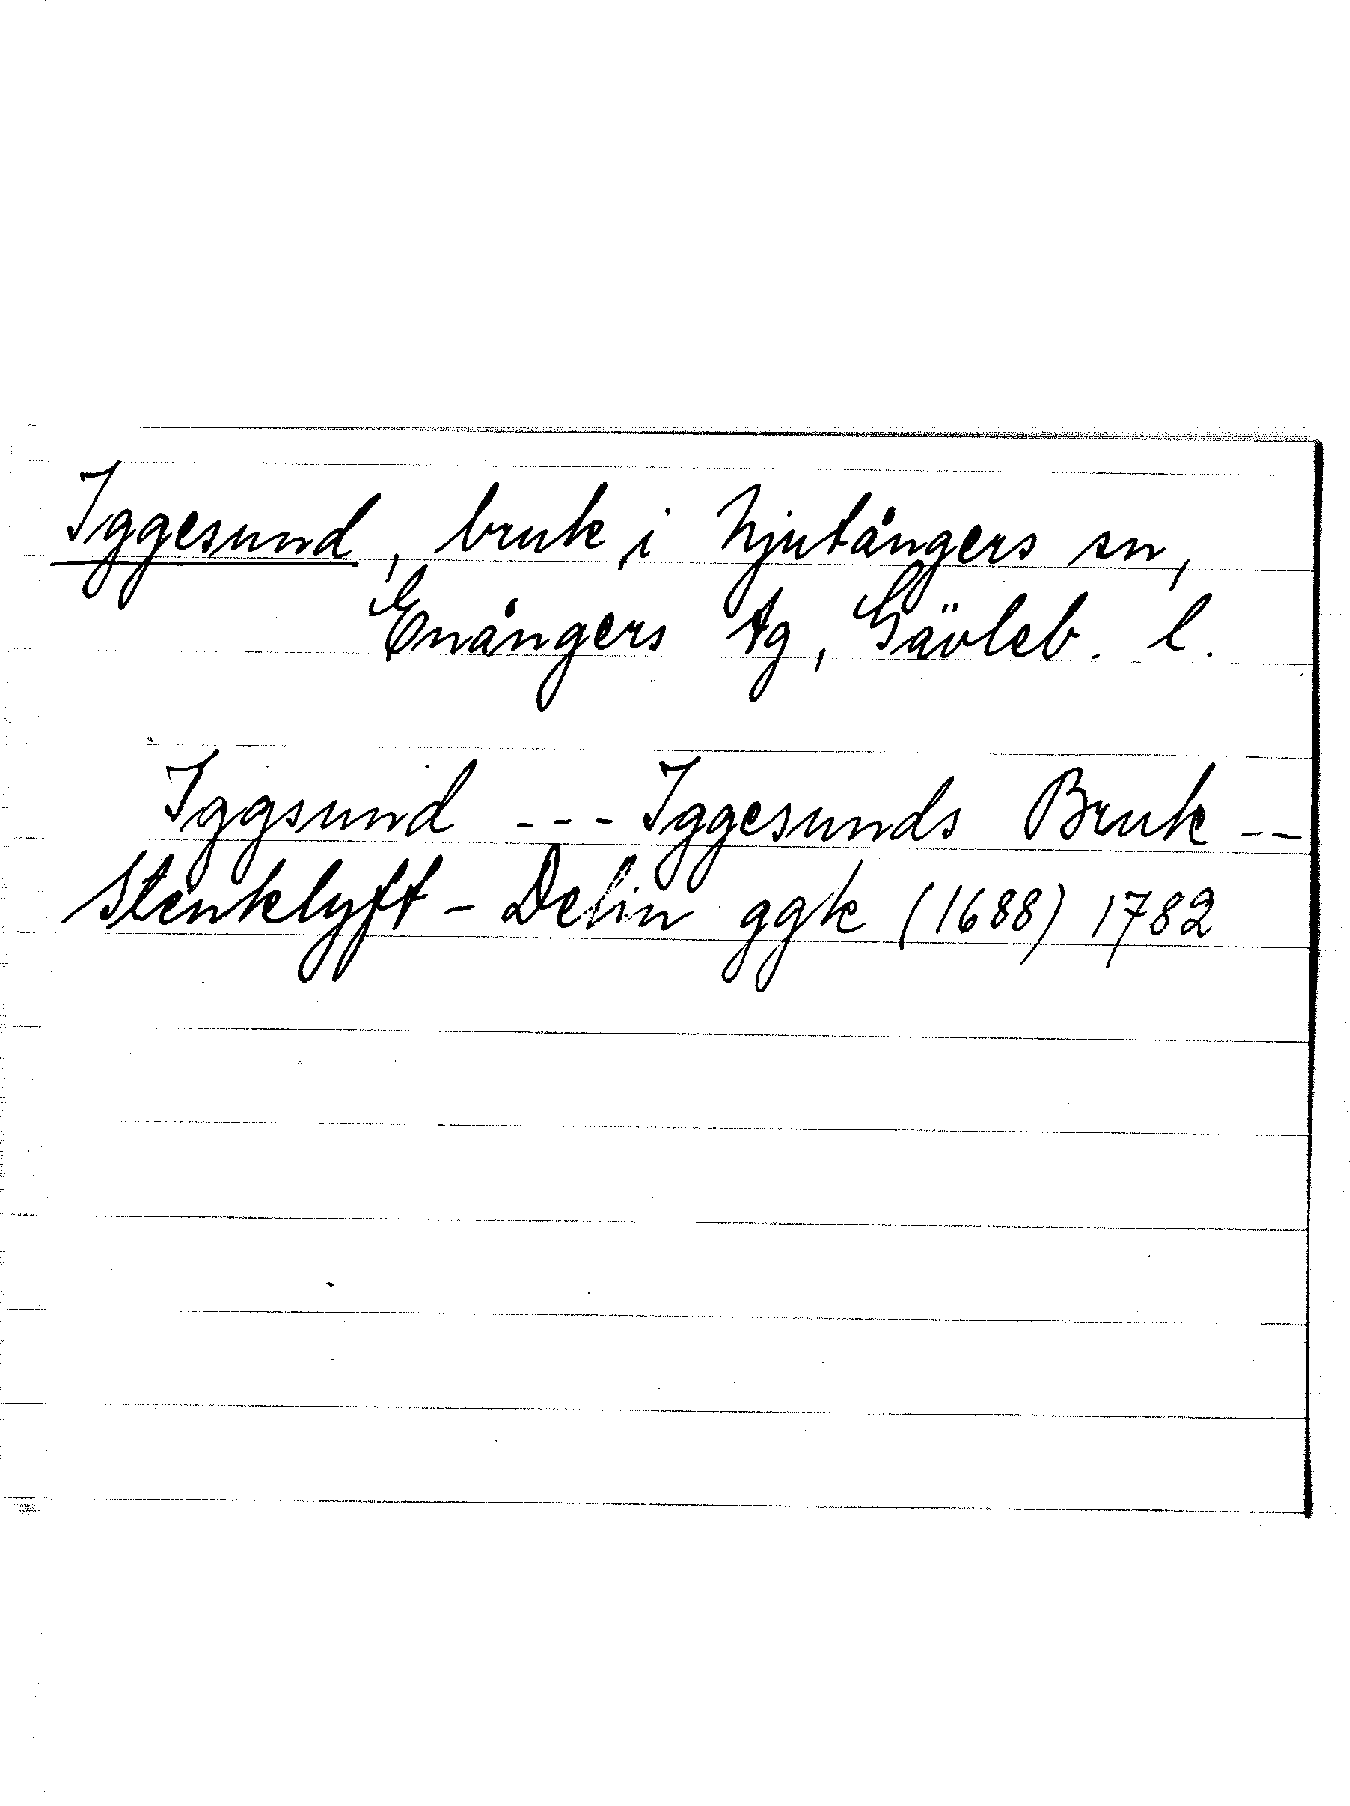 Iggesund, bruk i Njutångers sn,
Enångers tg, Gävleb. l.
Iggsund --- Iggesunds Bruk --
Stenklyft - Delin ggk (1688) 1782